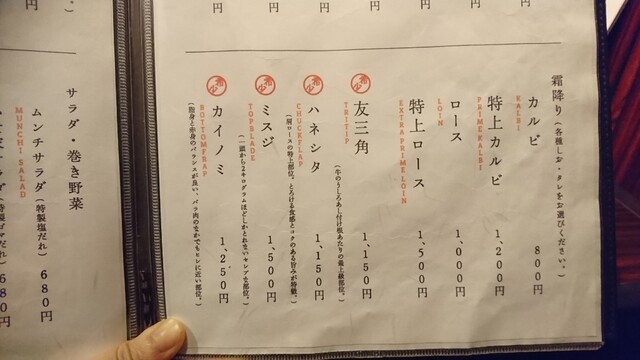 円
円
円
円
円
円
円
霜降り（各種しお・タレをお選びください。）
カルビ 800円
KALBI
特上カルビ 1,200円
PRIME KALBI
ロース 1,000円
LOIN
特上ロース 1,500円
EXTRA PRIME LOIN
希少
友三角 1,150円
TRITIP
（牛のうしろあし付け根あたりの最上級部位。）
希少
ハネシタ 1,150円
CHUCKFLAP
（肩ロースの特上部位。とろける食感とコクのある旨みが特徴。）
希少
ミスジ 1,500円
TOPBLADE
（一頭から2キログラムほどしかとれないセレブな部位。）
希少
カイノミ 1,250円
BOTTOMFRAP
（脂身と赤身のバランスが良い、バラ肉のなかでもヒレに近い部位。）
円
サラダ・巻き野菜
ムンチサラダ（特製塩だれ） 680円
MUNCHI SALAD
680円